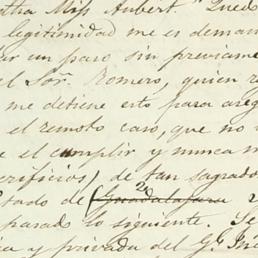 tha Miss Hubert. Quedo
legitimidad me es deman
ar un paso sin previame
el Soñr. Romero, quien r
me detiene esto para areg
el remoto caso, que no
e el cumplir y nunca m
crificios) de tan sagrado
stado de Guadalajara
parado lo siguiente. Se
ica y privada del G.l